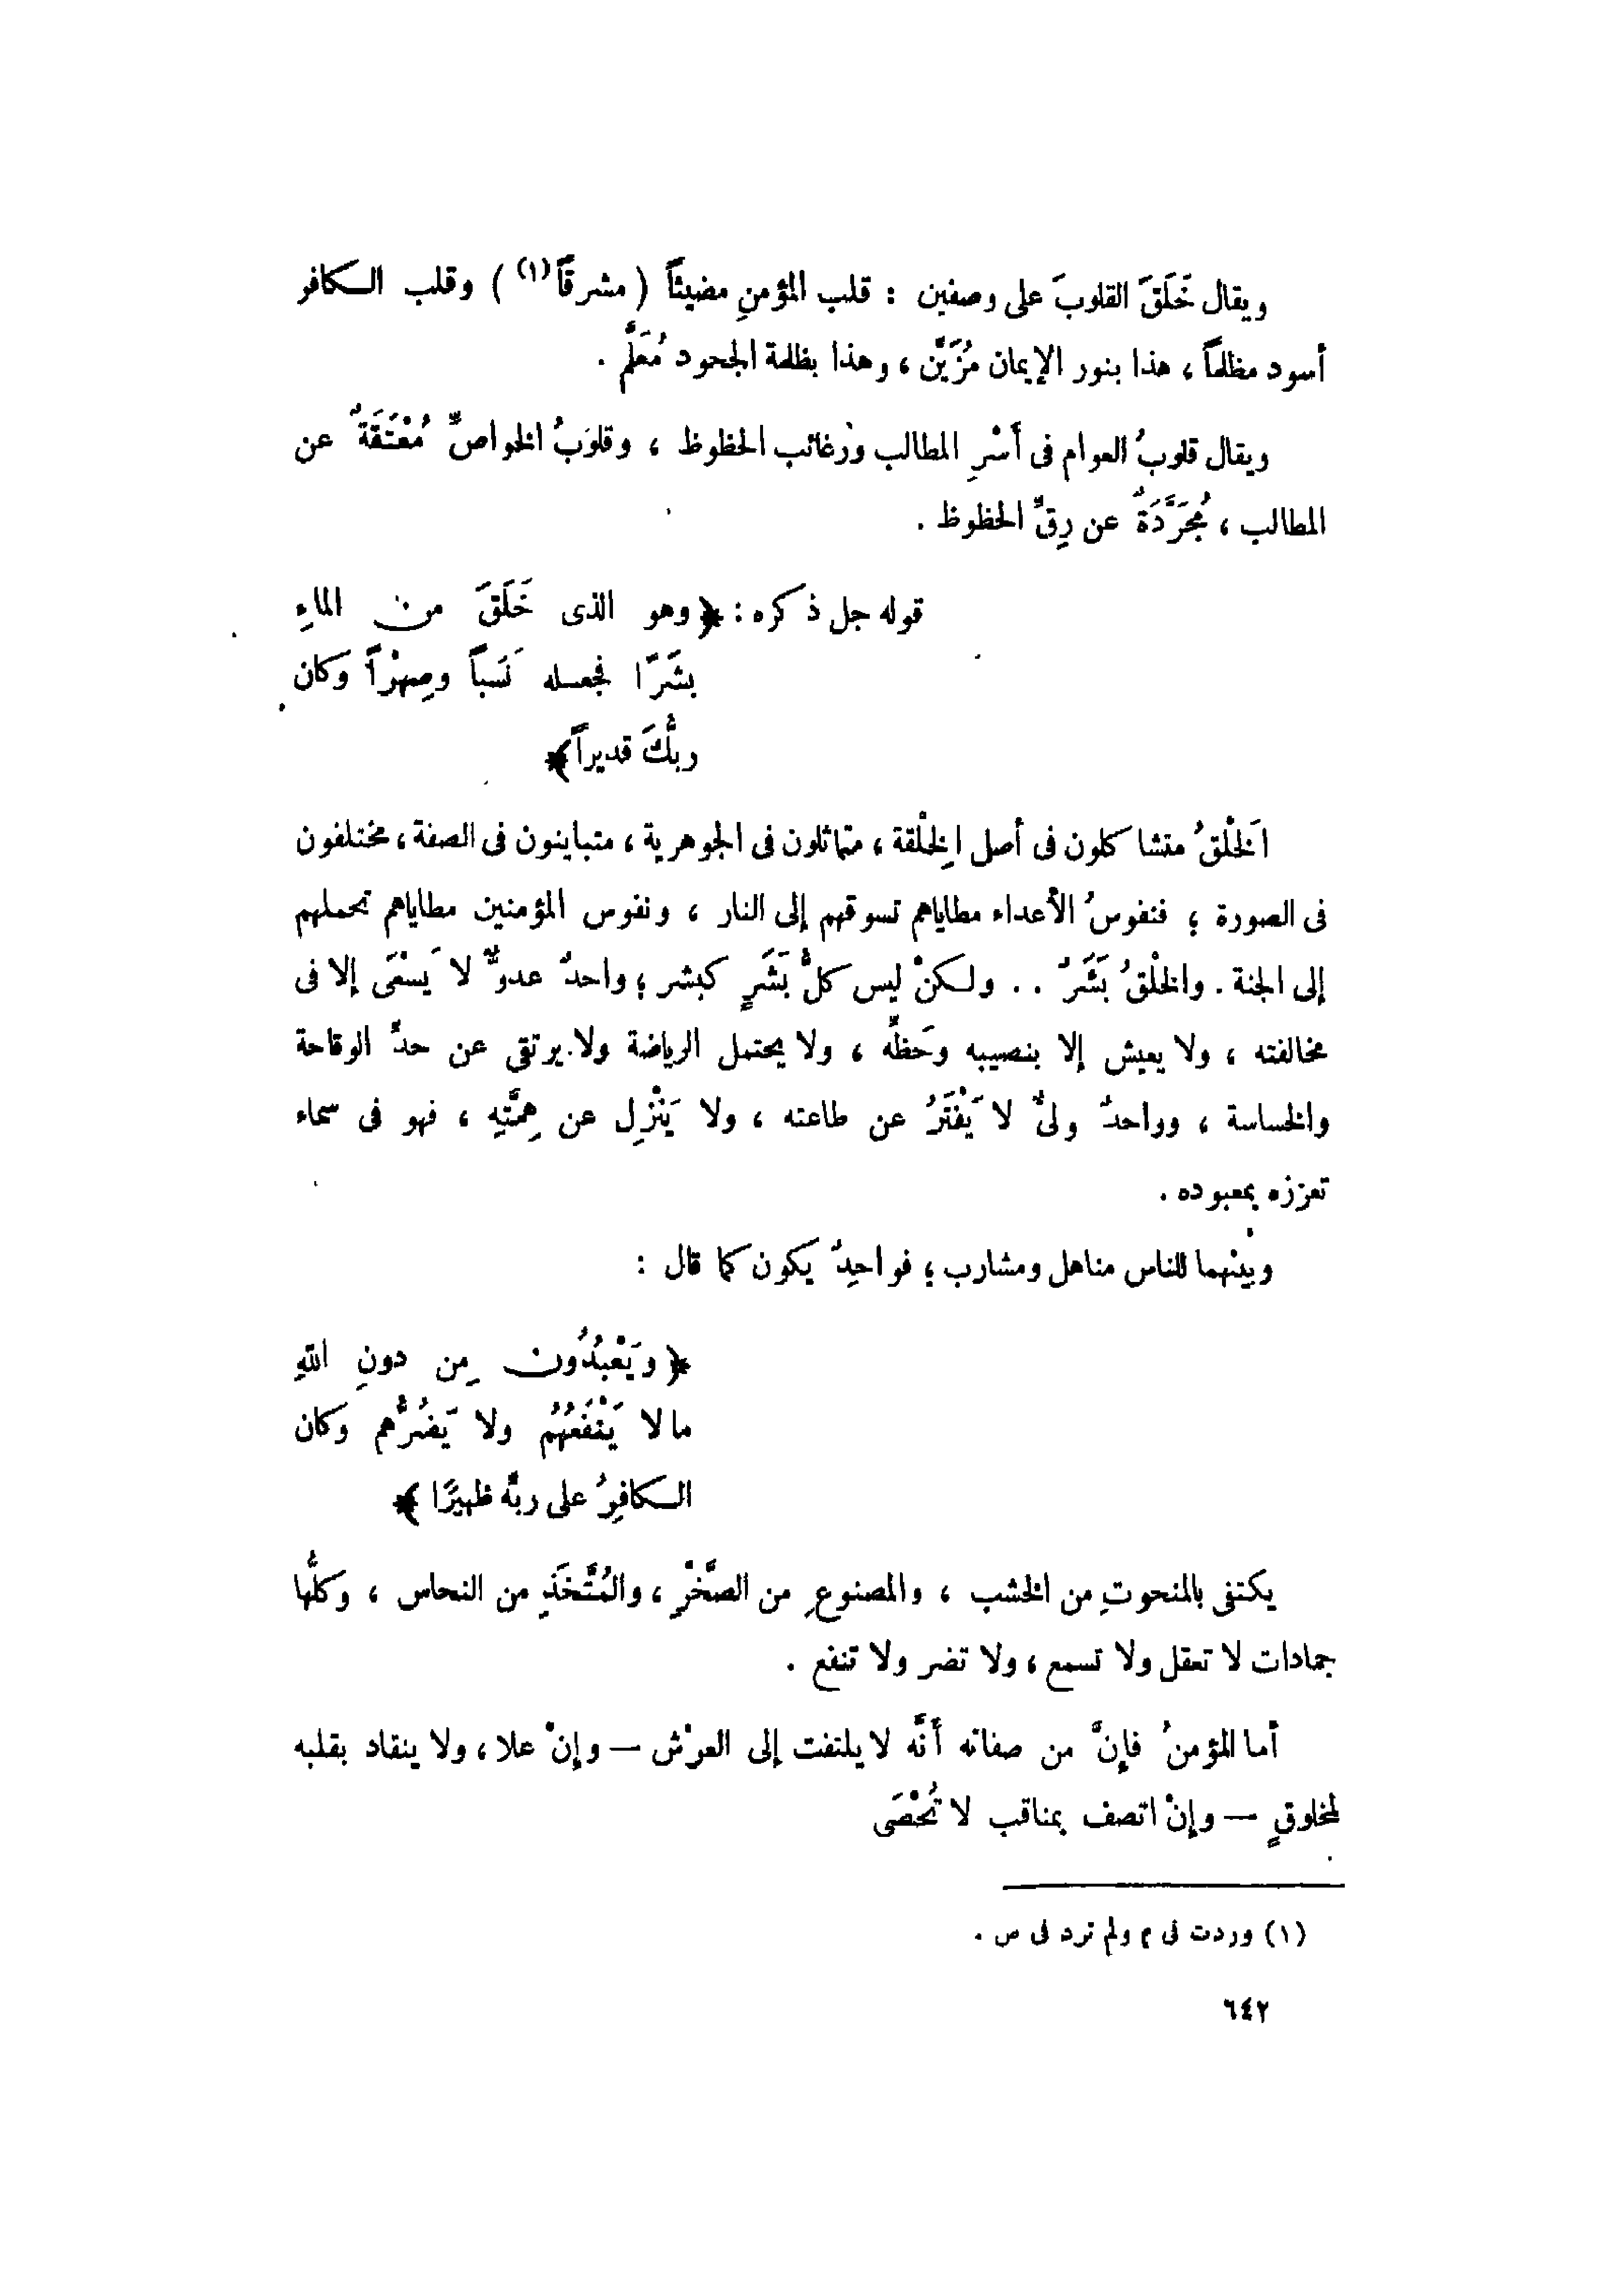 ويقال خَلَقَ القلوبَ على وصفين : قلب المؤمنِ مضيئاً ( مشرقاً(١) ) وقلب الكافر
أسود مظلماً ، هذا بنور الإيمان مُزَيَّن ، وهذا بظلمة الجحود مُعَلَّم .
ويقال قلوبُ العوام فى أَسْرِ المطالب ورغائب الحظوظ ، وقلوبُ الخواصِّ مُعْتَقَةٌ عن
المطالب ، مُجَرَّدَةٌ عن رِقِّ الحظوظ .
قوله جل ذكره : ﴿ وهو الذى خَلَقَ من الماءِ
بشَرَاً فجعله نَسَباً وصِهْراً وكان
ربُّكَ قديراً ﴾
الخَلْقُ متشاكلون فى أصل الخِلْقة ، متماثلون فى الجوهرية ، متباينون فى الصفة ، مختلفون
فى الصورة ؛ فنفوسُ الأعداء مطاياهم تسوقهم إلى النار ، ونفوس المؤمنين مطاياهم تحملهم
إلى الجنة . والخلْقُ بَشَرٌ . . ولكنْ ليس كلُّ بَشَرٍ كبشر ؛ واحدٌ عدوٌّ لا يَسْعَى إلا فى
مخالفته ، ولا يعيش إلا بنصيبه وحَظِّه ، ولا يحتمل الرياضة ولا يرتقى عن حدِّ الوقاحة
والخساسة ، وواحدٌ ولىٌّ لا يَفْتَرُ عن طاعته ، ولا يَنْزِل عن هِمَّتِهِ ، فهو فى سماء
تعززه بمعبوده .
وبينهما للناس مناهل ومشارب ؛ فواحِدٌ يكون كما قال :
﴿ ويَعْبُدُون مِن دونِ اللهِ
ما لا يَنْفَعُهُم ولا يَضُرُّهم وكان
الكافِرُ على ربِّه ظهيرًا ﴾
يكتفى بالمنحوتِ من الخشب ، والمصنوعِ من الصَّخْرِ ، والمُتَّخَذِ من النحاس ، وكلُّها
جمادات لا تعقل ولا تسمع ، ولا تضر ولا تنفع .
أما المؤمنُ فإنَّ من صفاته أنَّه لا يلتفت إلى العرْش — وإنْ علا ، ولا ينقاد بقلبه
لمخلوقٍ — وإنْ اتصف بمناقب لا تُحْصَى
(١) وردت فى م ولم ترد فى س .
٦٤٢